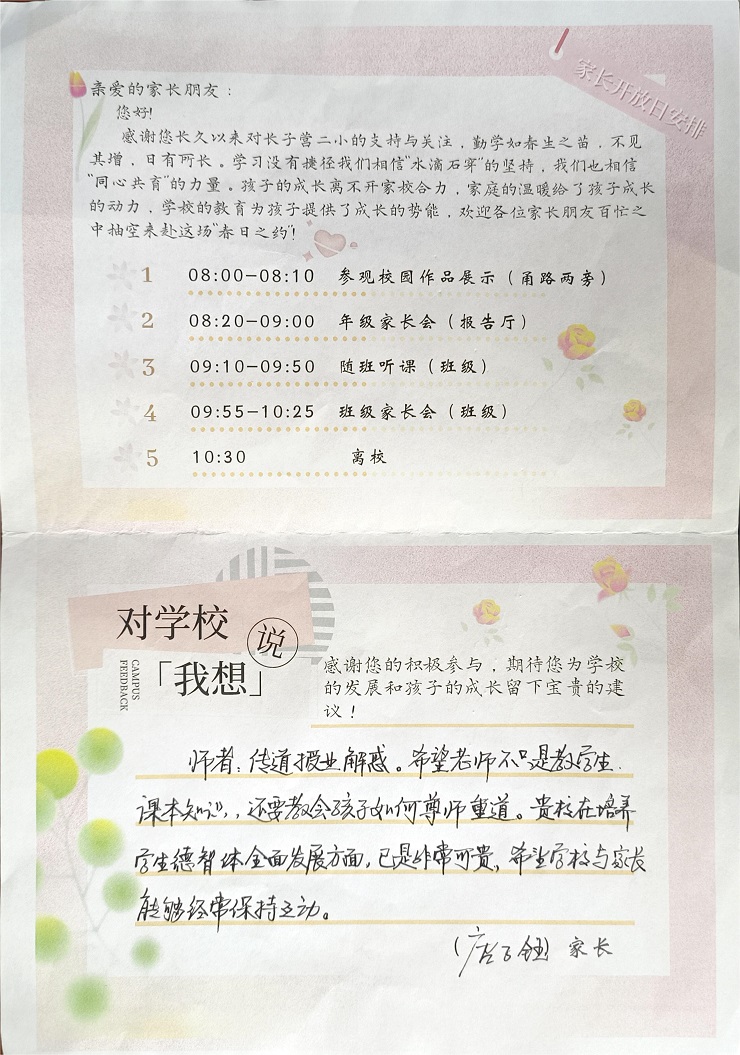 家长开放日安排
亲爱的家长朋友：
您好！
感谢您长久以来对长子营二小的支持与关注，勤学如春生之苗，不见
其增，日有所长。学习没有捷径我们相信“水滴石穿”的坚持，我们也相信
“同心共育”的力量。孩子的成长离不开家校合力，家庭的温暖给了孩子成长
的动力，学校的教育为孩子提供了成长的势能，欢迎各位家长朋友百忙之
中抽空来赴这场“春日之约”！
1 08:00-08:10 参观校园作品展示（甬路两旁）
2 08:20-09:00 年级家长会（报告厅）
3 09:10-09:50 随班听课（班级）
4 09:55-10:25 班级家长会（班级）
5 10:30 离校
对学校
说
「我想」
CAMPUS
FEEDBACK
感谢您的积极参与，期待您为学校
的发展和孩子的成长留下宝贵的建
议！
师者：传道授业解惑。希望老师不只是教学生
课本知识，还要教会孩子如何尊师重道。贵校在培养
学生德智体全面发展方面，已是非常可贵，希望学校与家长
能够经常保持互动。
家长